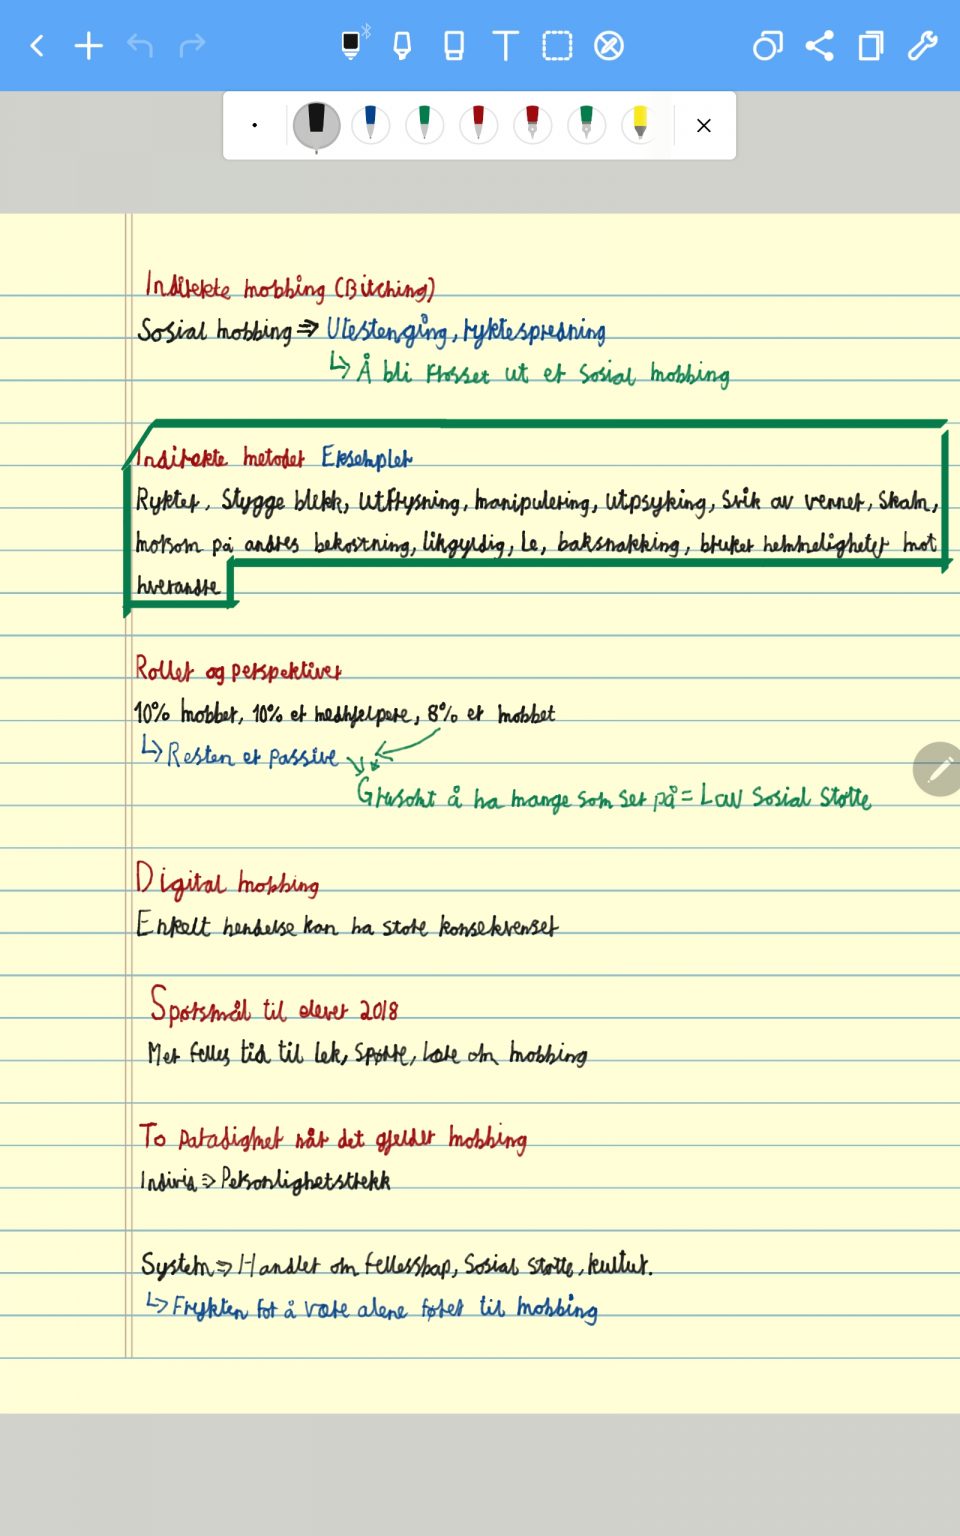 Indirekte mobbing (Bitching)
Sosial mobbing ⇒ Utestengång, ryktespredning
↳ Å bli frosset ut er sosial mobbing
Indirekte metoder Eksempler
Rykter, Stygge blikk, utfrysning, manipulering, utpsyking, Svik av venner, Skam,
morsom på andres bekostning, likgyldig, Le, baksnakking, bruker hemmeligheter mot
hverandre
Roller og perspektiver
10% mobber, 10% er medhjelpere, 8% er mobbet
↳ Resten er passive
Grusomt å ha mange som ser på = Lav Sosial Støtte
Digital mobbing
Enkelt hendelse kan ha store konsekvenser
Spørsmål til elever 2018
Mer felles tid til lek, Spørre, lære om mobbing
To paradigmer når det gjelder mobbing
Individ ⇒ Personlighetstrekk
System ⇒ Handler om fellesskap, Sosial støtte, kultur.
↳ Frykten for å være alene fører til mobbing